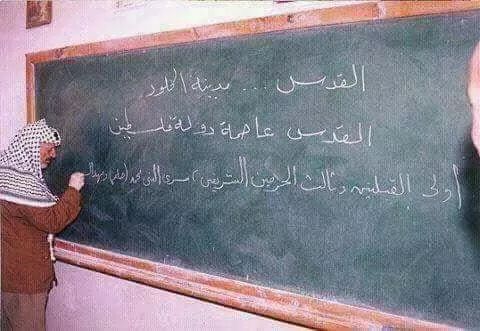 القدس ... مدينة الخلود
القدس عاصمة دولة فلسطين
أولى القبلتين وثالث الحرمين الشريفين، مسرى النبي محمد (صلعم) ومهد